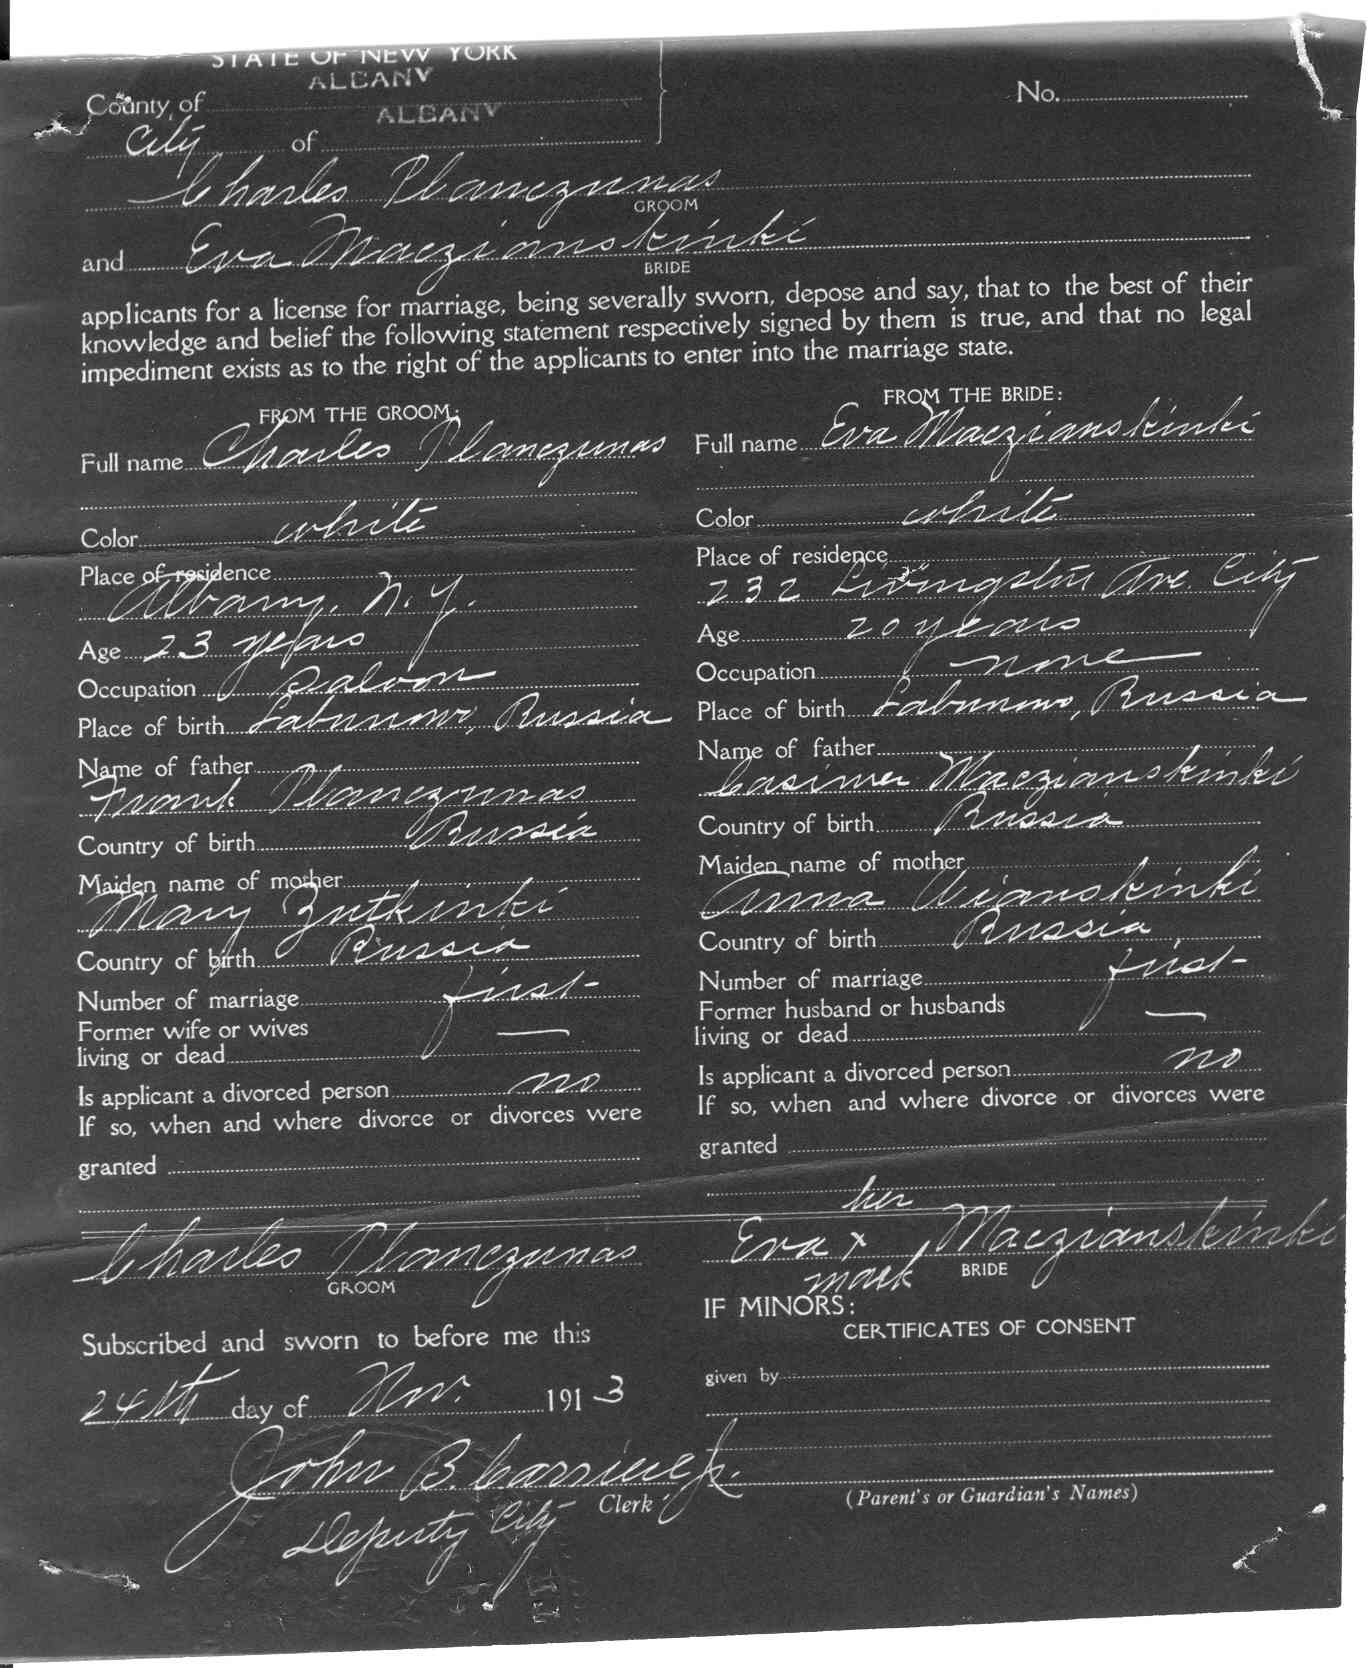 STATE OF NEW YORK
County of ALBANY
City of ALBANY
No.
Charles Planczunas
GROOM
and Eva Maczianskinki
BRIDE
applicants for a license for marriage, being severally sworn, depose and say, that to the best of their
knowledge and belief the following statement respectively signed by them is true, and that no legal
impediment exists as to the right of the applicants to enter into the marriage state.
FROM THE GROOM:
Full name Charles Planczunas
Color white
Place of residence
Albany, N.Y.
Age 23 years
Occupation Saloon
Place of birth Labunowo, Russia
Name of father
Frank Planczunas
Country of birth Russia
Maiden name of mother
Mary Zutkinki
Country of birth Russia
Number of marriage first
Former wife or wives
living or dead —
Is applicant a divorced person no
If so, when and where divorce or divorces were
granted
Charles Planczunas
GROOM
Subscribed and sworn to before me this
24th day of Nov. 1913
John B. Jr.
Clerk
Deputy City
FROM THE BRIDE:
Full name Eva Maczianskinki
Color white
Place of residence
232 Livingston Ave. City
Age 20 years
Occupation none
Place of birth Labunowo, Russia
Name of father
Casimer Maczianskinki
Country of birth Russia
Maiden name of mother
Anna Wianskinki
Country of birth Russia
Number of marriage first
Former husband or husbands
living or dead —
Is applicant a divorced person no
If so, when and where divorce or divorces were
granted
her
Eva x Maczianskinki
mark BRIDE
IF MINORS:
CERTIFICATES OF CONSENT
given by
(Parent's or Guardian's Names)